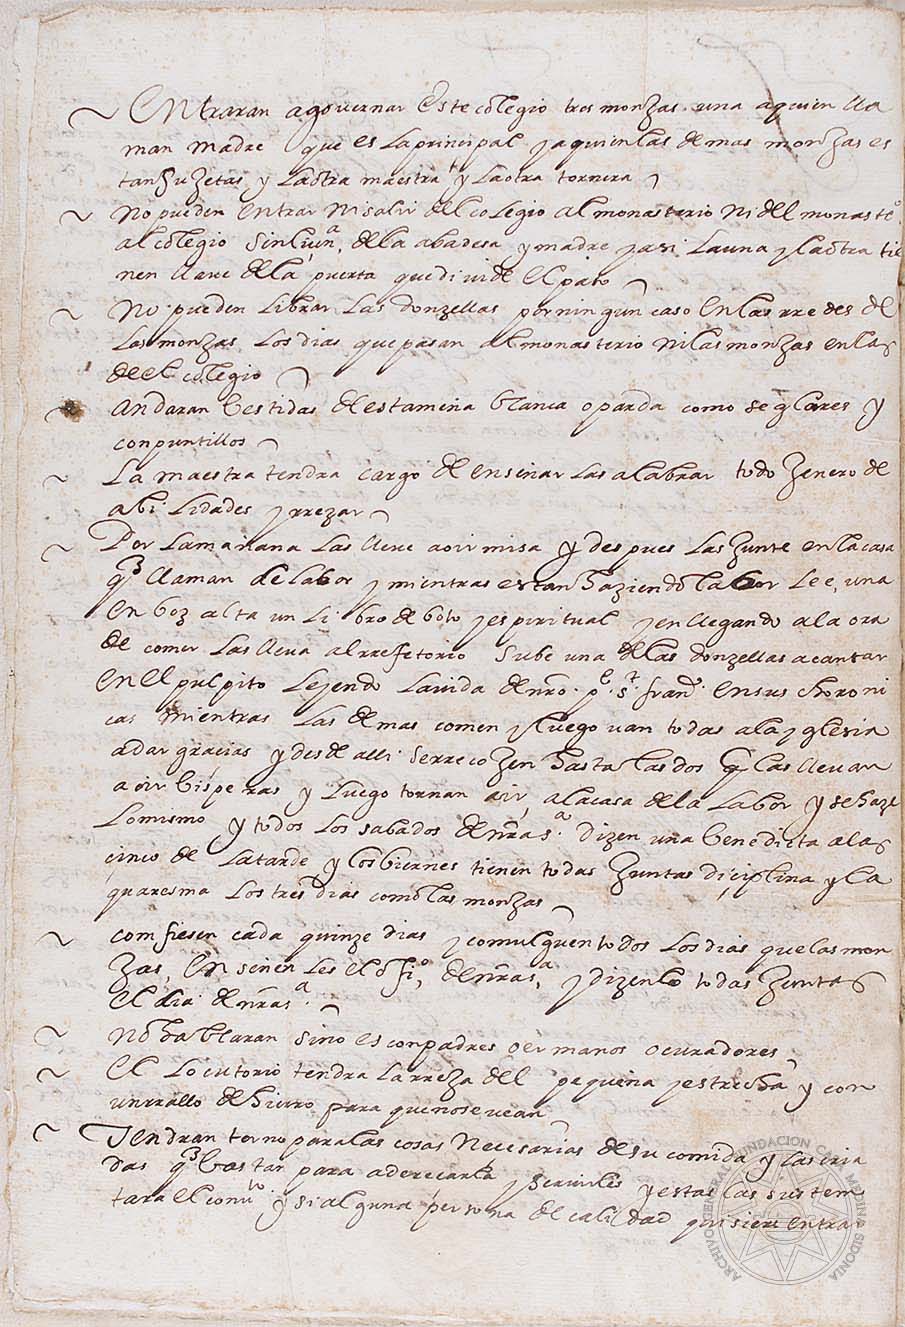 Entraran agouernar este colegio tres monzas una aquien lla
man madre que es la principal y aquien las demas monzas es
tan suzetas y la otra maestra y la otra tornera
No pueden entrar ni salir del colegio al monasterio ni del monastº
al colegio sin liçnª de la abadesa y madre y asi la una y la otra tie
nen llaue de la puerta que diuide el patio
No pueden librar las donzellas por ningun caso en las rredes de
las monzas los dias que pasan al monasterio ni las monzas en las
de el colegio
andaran bestidas de estameña blanca o parda como seglares y
con puntillos
La maestra tendra cargo de enseñar las a labrar todo zenero de
abilidades y rrezar
Por la mañana las lleue a oir misa y despues las zunte en la casa
q llaman de labor y mientras estan haziendo labor lee una
en boz alta un libro deboto y espiritual y en llegando a la ora
de comer las lleua al rrefetorio sube una de las donzellas a cantar
en el pulpito leyendo la uida de nro pe st franco en sus choroni
cas mientras las demas comen y luego uan todas a la yglesia
a dar gracias y desde alli se rrecozen hasta las dos q las lleuan
a oir bisperas y luego tornan a ir a la casa de la labor y se haze
lo mismo y todos los sabados de nra sª dizen una benedicta a las
çinco de la tarde y los biernes tienen todas zuntas diçiplina y la
quaresma los tres dias como las monzas
comfiesen cada quinze dias y comulguen todos los dias que las mon
zas, enseñen les el offiº de nra sª y dizenlo todas zuntas
el dia de nra sª
No hablaran sino es con padres o ermanos o curadores
El locutorio tendra la rreza del pequeña y estrecha y con
un rrallo de hierro para que no se uean
Tendran torno para las cosas necesarias de su comida y las cria
das q bastar para aderecarla y seruirles y estas las susten
tara el conuto y si alguna persona de calidad quisiere entrar
ARCHIVO GENERAL FUNDACION CASA MEDINA SIDONIA